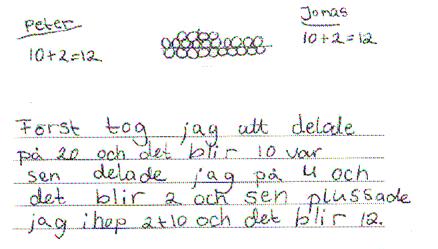 Peter
Jonas
10+2=12
10+2=12
Först tog jag att delade
på 20 och det blir 10 var
sen delade jag på 4 och
det blir 2 och sen plussade
jag ihop 2+10 och det blir 12.